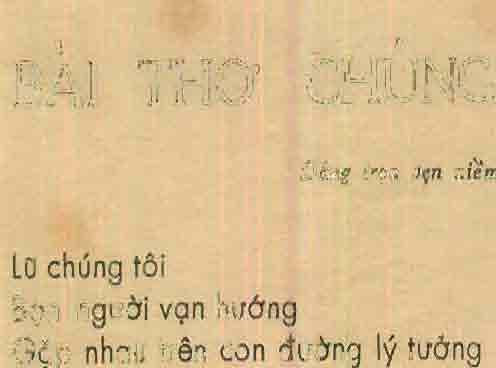 BÀI THƠ CHÚNG
trọn vẹn niềm
Lũ chúng tôi
Bọn người vạn hướng
Gặp nhau trên con đường lý tưởng